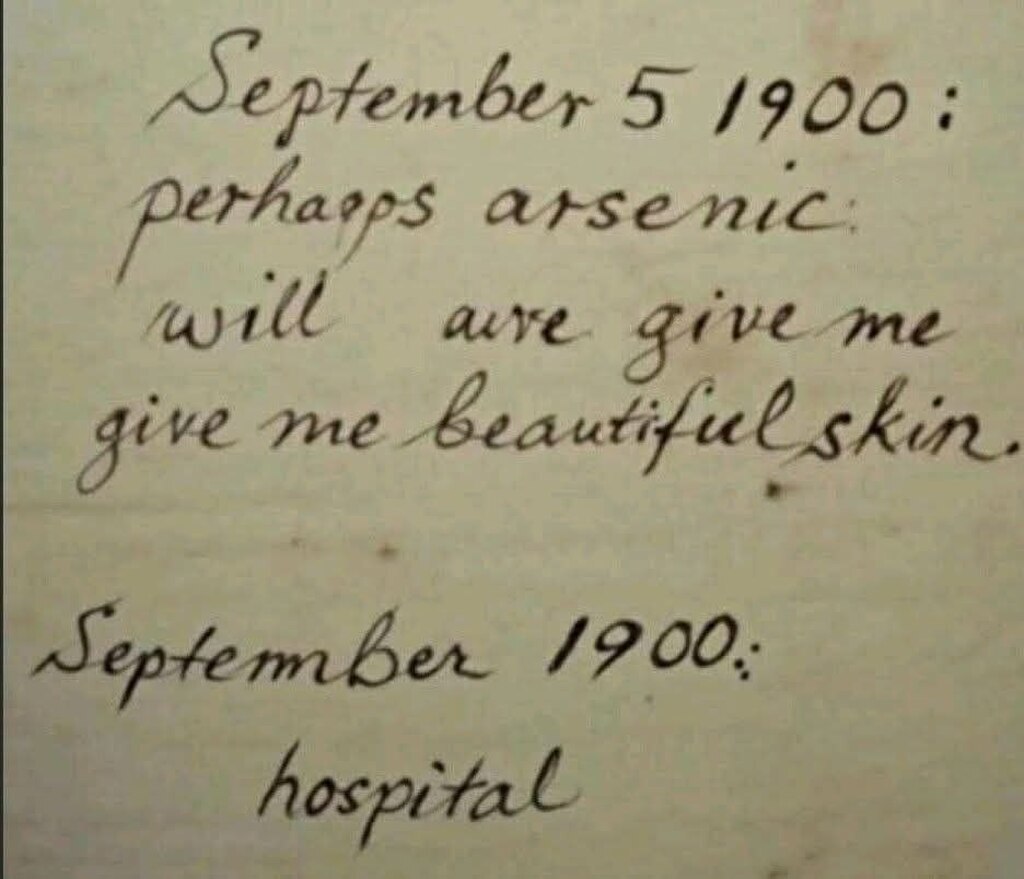 September 5 1900:
perhapps arsenic.
will aire give me
give me beautiful skin.
Septemnber 1900:
hospital